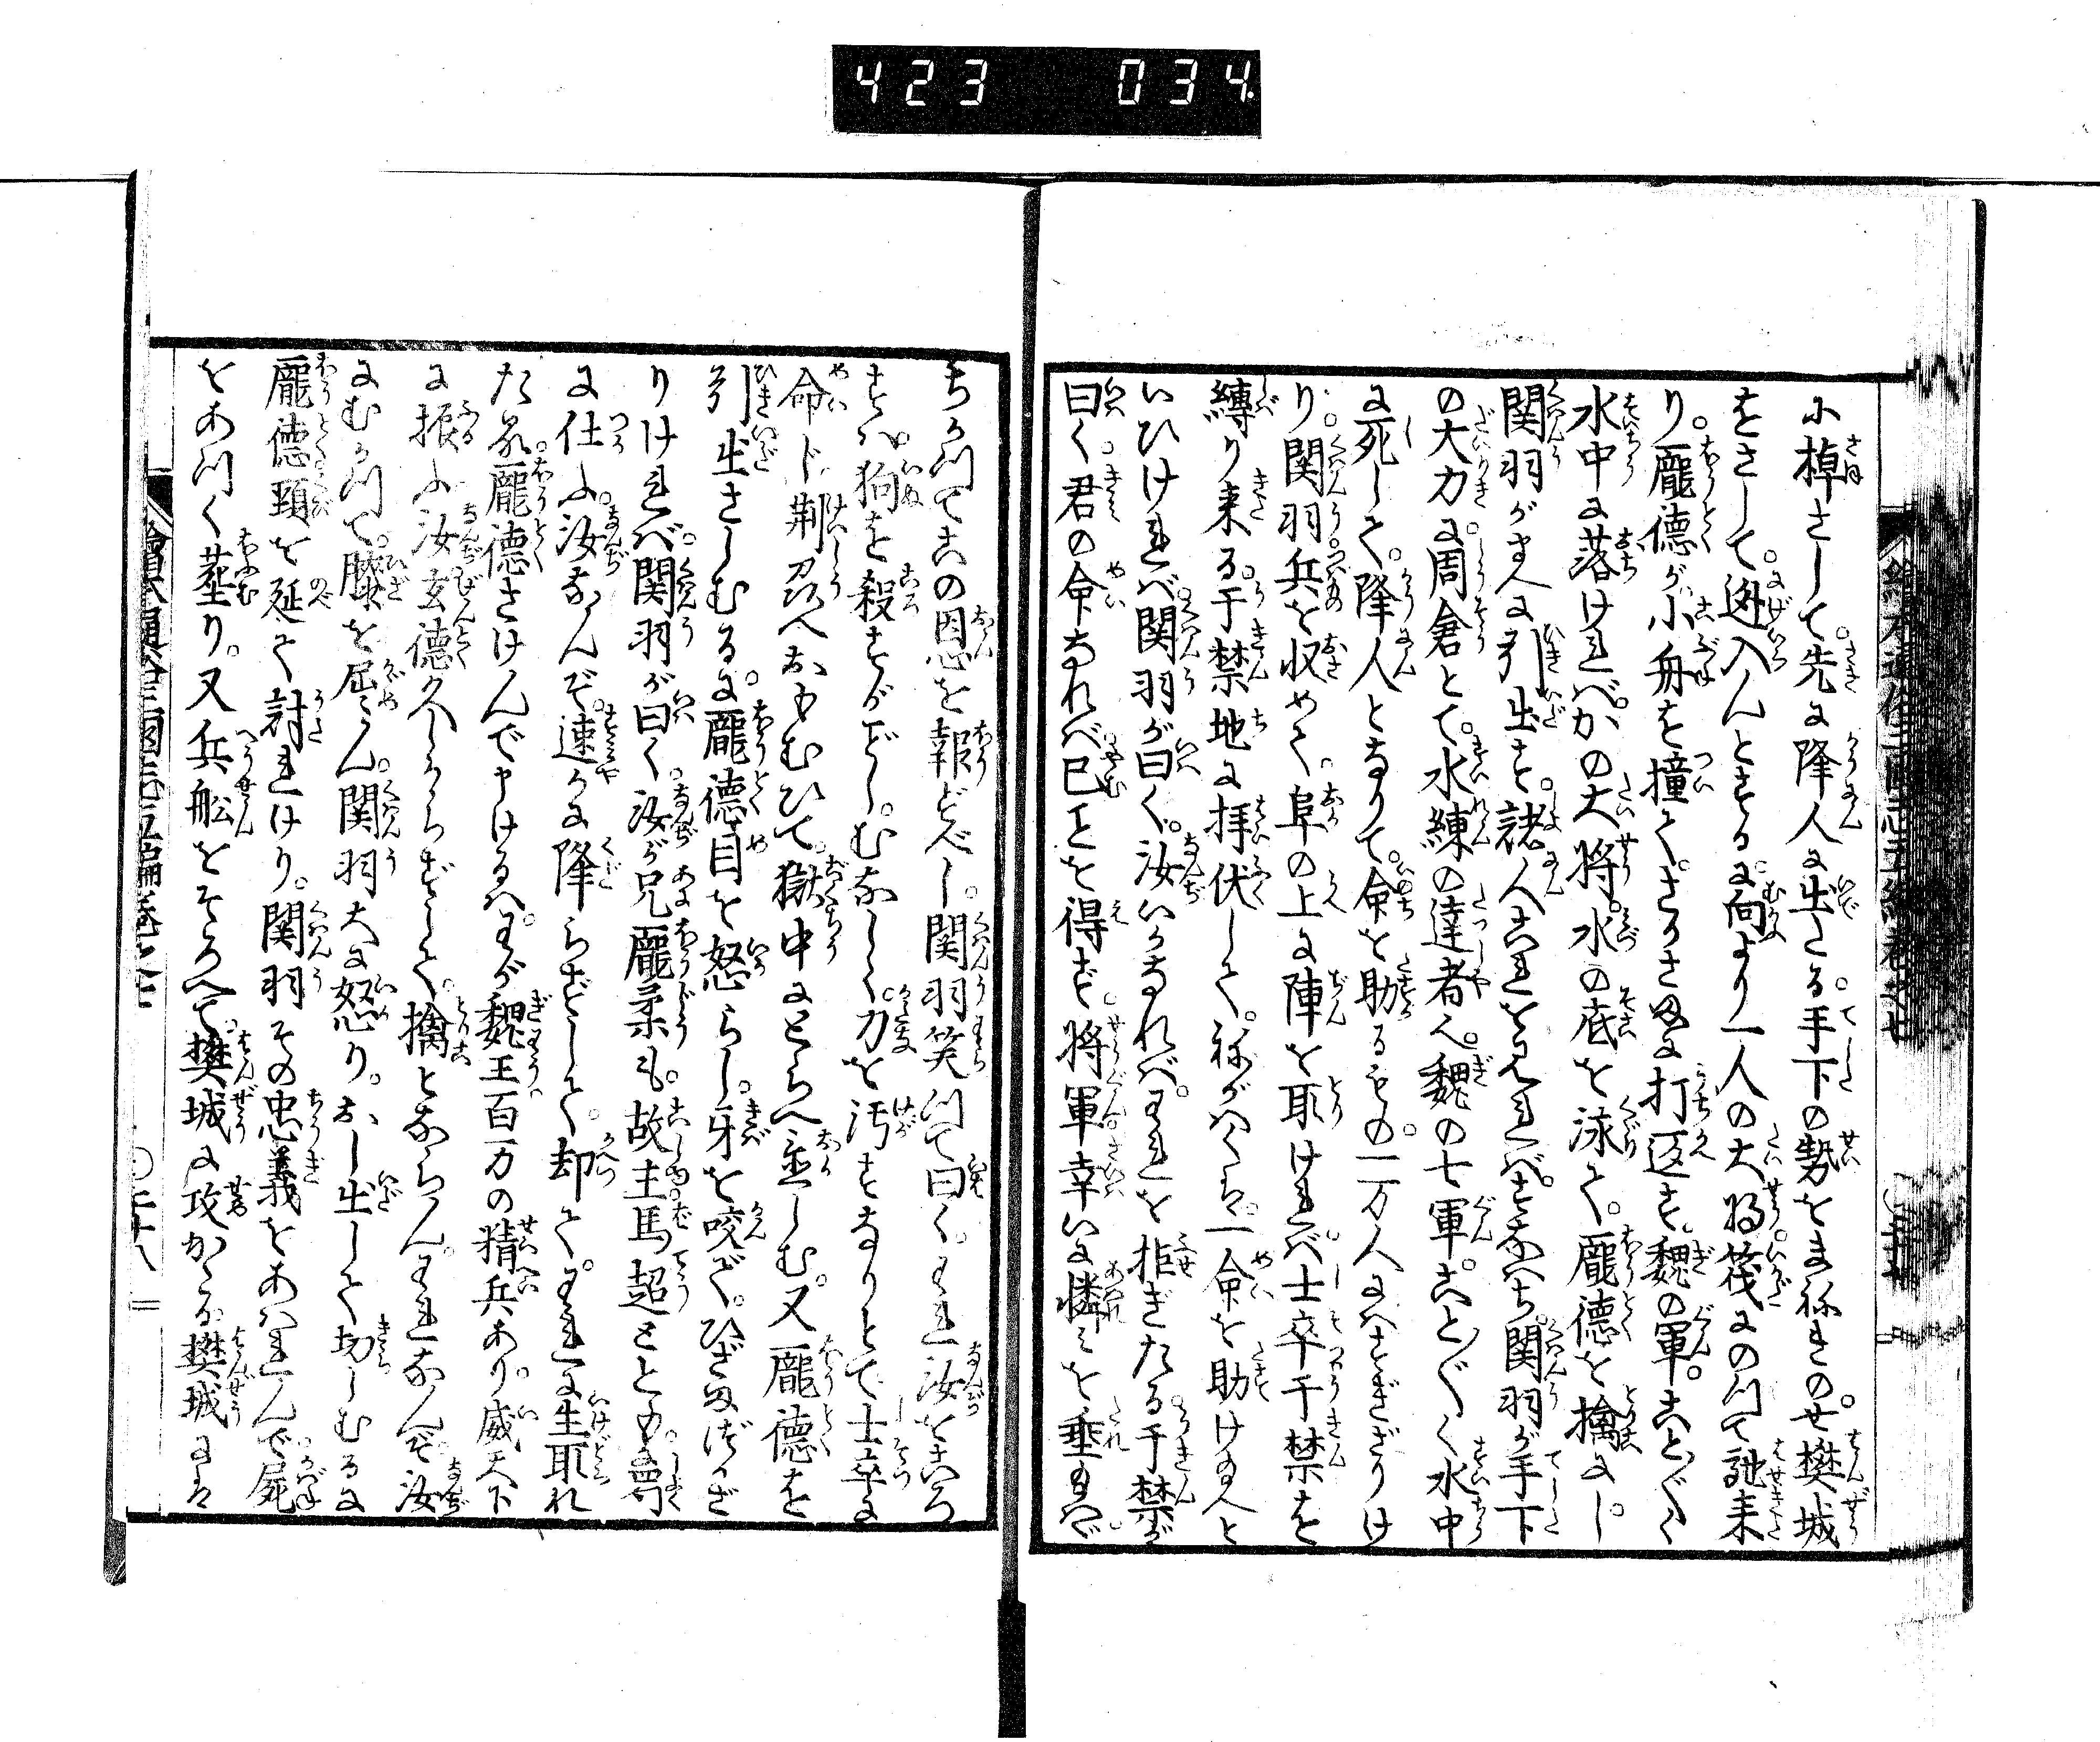 423 034
に棹さして。先に降人に出たる。手下の勢をまねきのせ。樊城
をさして。迯入んとするに。向より一人の大将。筏にのつて馳来
り。龐徳が小舟を撞て。さかさまに打返す。魏の軍。こと〴〵く
水中に落ければ。かの大将。水の底を泳て。龐徳を擒にし。
関羽がまへに引出す。諸人これを見れば。すなはち。関羽が手下
の大力に。周倉とて。水練の達者也。魏の七軍。こと〴〵く水中
に死して。降人となりて。命を助るもの。一二万人にはすぎざりけ
り。関羽兵を収めて。阜の上に陣を取ければ。士卒于禁を
縛り来る。于禁地に拝伏して。ねがはくは。一命を助け給へと
いひければ。関羽が曰く。汝いかなれば。われを拒ぎたる。于禁が
曰く。君の命なれば。已ことを得ず。将軍幸いに憐みを垂給はゞ。
ちかつてこの恩を報ずべし。関羽笑つて曰く。われ汝をころ
すは。狗を殺すがごとし。むなしく。刀を汚すなりとて。士卒に
命じ。荊州へおもむひて。獄中にとらへ置しむ。又龐徳を
引出さしむるに。龐徳目を怒らし。牙を咬で。ひざまづかざ
りければ。関羽が曰く。汝が兄龐柔も。故主馬超ともとも。蜀
に仕ふ。汝なんぞ。速かに降らずして。却て。われに生取れ
たる。龐徳さけんで申けるは。わが魏王百万の精兵あり。威天下
に振ふ。汝玄徳久しからずして。擒となちん。われなんぞ。汝
にむかつて。膝を屈せん。関羽大に怒り。おし出して切しむるに
龐徳頚を延て討れけり。関羽その忠義をあはれんで。屍
をあつく葬り。又兵舩をそろへて。樊城に攻かゝる。樊城には